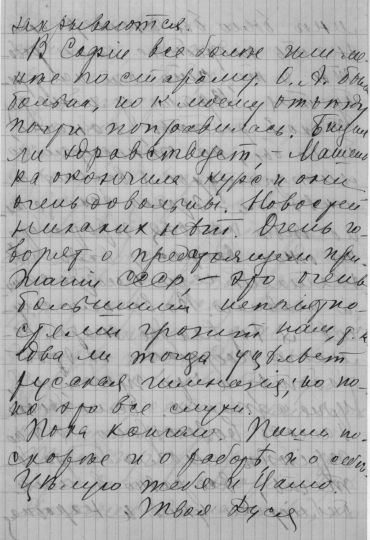 называются.
В Софии все более или ме-
нее по старому. О. А. была
больна, но к моему отъезду
почти поправилась.
ли здравствует, – Машень-
ка окончила курс и они
очень довольны. Новостей
никаких нѣт. Очень го-
ворят о предстоящем при-
знании СССР, – это очень
большими неприятно-
стями грозит нам, д. и
едва ли тогда уцѣлѣет
русская гимназія; но по-
ка это все слухи.
Пока кончаю. Пиши по-
скорее и о работѣ и о себѣ.
Цѣлую тебя и
Твоя Дуся